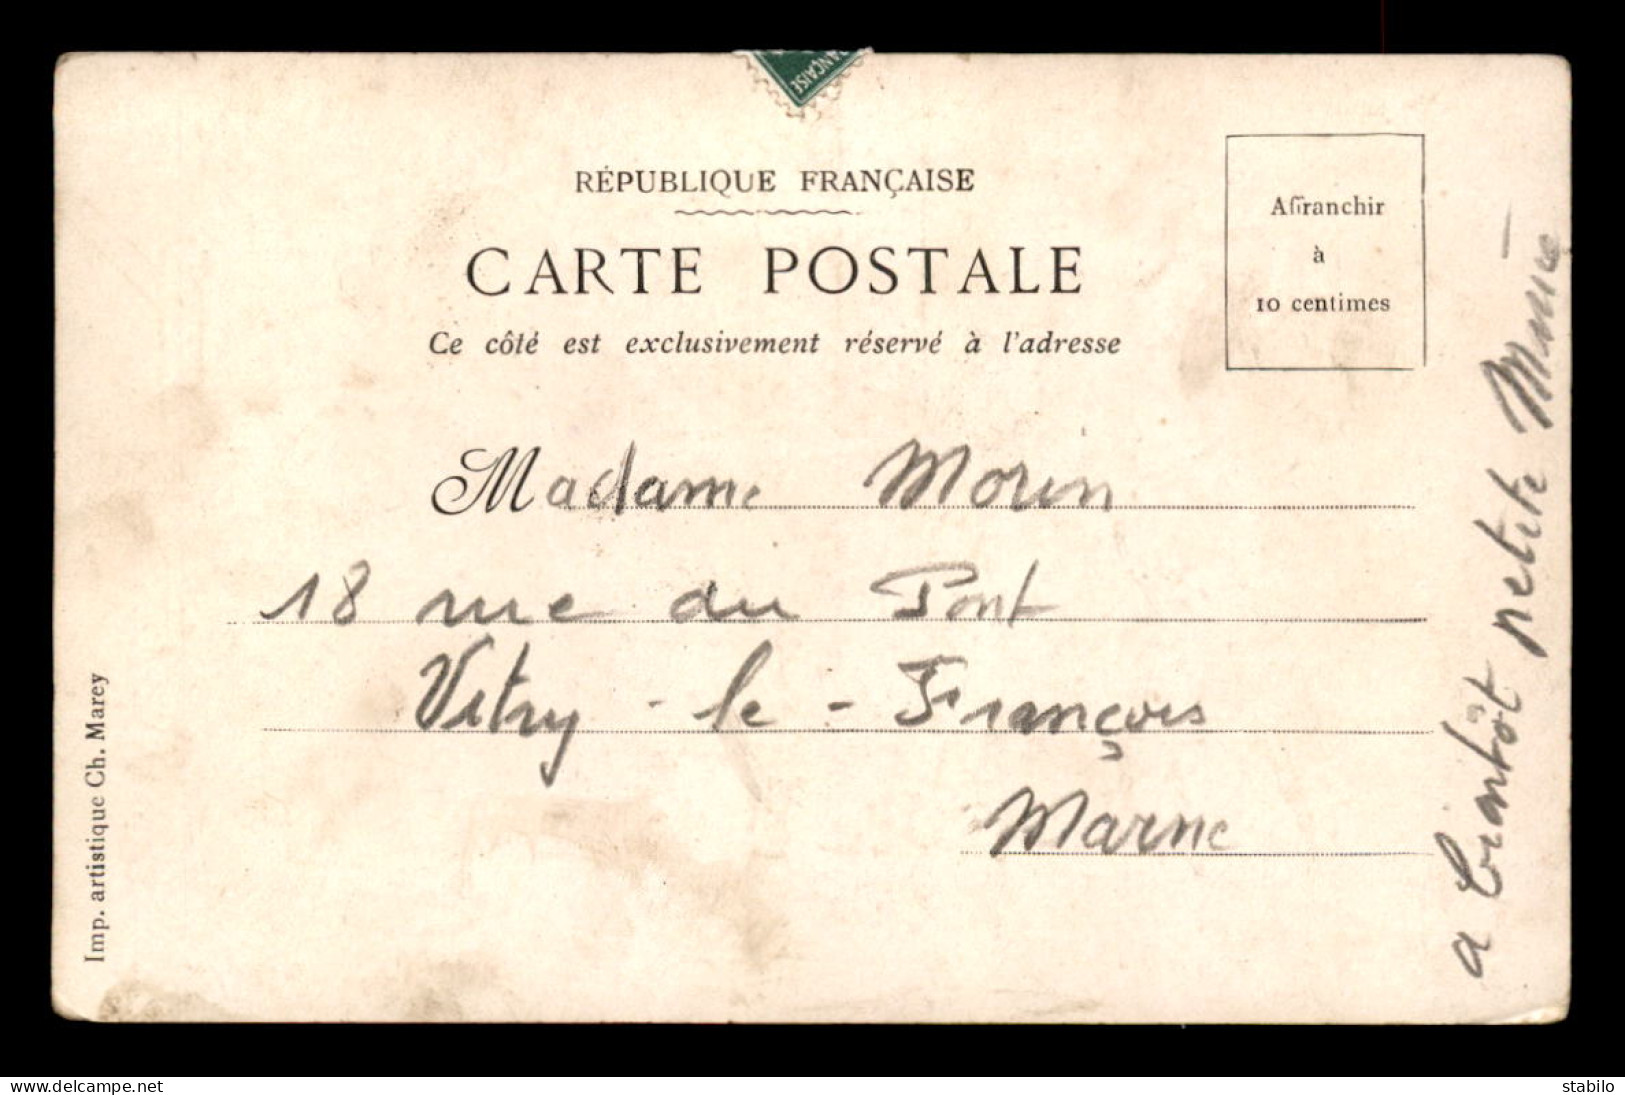 ANÇAISE
RÉPUBLIQUE FRANÇAISE
CARTE POSTALE
Ce côté est exclusivement réservé à l'adresse
Affranchir
à
10 centimes
Madame Morin
18 rue du Pont
Vitry-le-François
Marne
a bientôt petite Mimie
Imp. artistique Ch. Marey
www.delcampe.net
stabilo